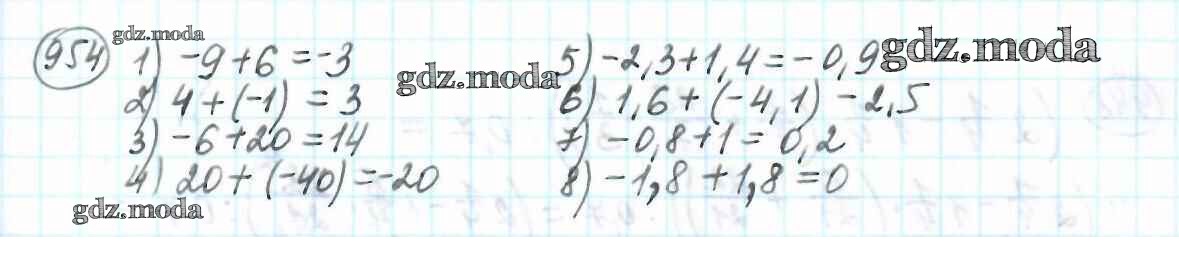 954 1) -9+6=-3
2) 4+(-1) = 3
3) -6+20=14
4) 20+(-40)=-20
5) -2,3+1,4=-0,9
6) 1,6+(-4,1) -2,5
7) -0,8+1=0,2
8) -1,8+1,8=0
gdz.moda
gdz.moda
gdz.moda
gdz.moda